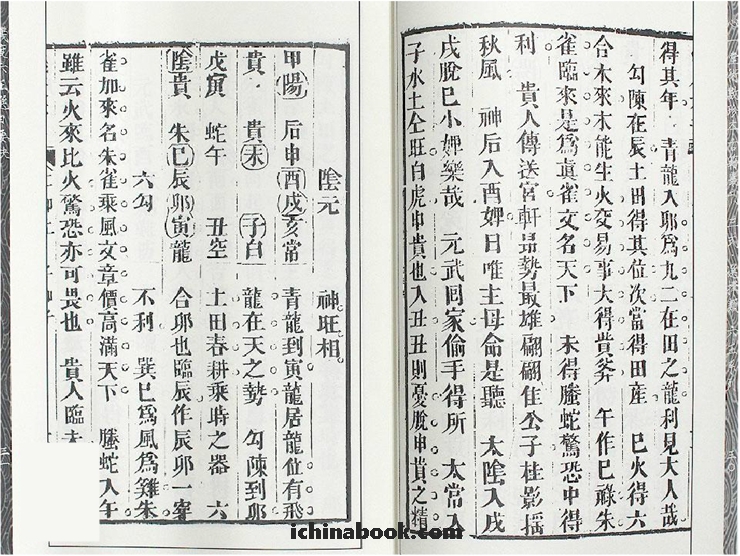 得其年 青龍入卯爲九二在田之龍利見大人哉
勾陳在辰土田得其位次當得田産 巳火得六
合木來木能生火变易事大得貴券 午作巳祿朱
雀臨來是爲眞雀文名天下 未得螣蛇驚恐中得
利 貴人傳送宮軒昂勢最雄翩翩佳公子桂影揺
秋風 神后入酉婢日唯主母命是聽 太陰入戌
戌脫巳小婢樂哉 元武囘家偷手得所 太常入
子水土仝旺白虎申貴也入丑丑則憂脫申貴之精
陰元 神旺相
甲陽 后申酉戌亥常 青龍到寅龍居龍位有飛
貴 貴未 子白 龍在天之勢 勾陳到卯
戊寅 蛇午 丑空 土田春耕乘時之器 六
陰貴 朱巳辰卯寅龍 合卯也臨辰作辰卯一宰
六勾 不利 巽巳爲風爲雞朱
雀加來名朱雀乘風文章價高滿天下 螣蛇入午
雖云火來比火驚恐亦可畏也 貴人臨未
ichinabook.com